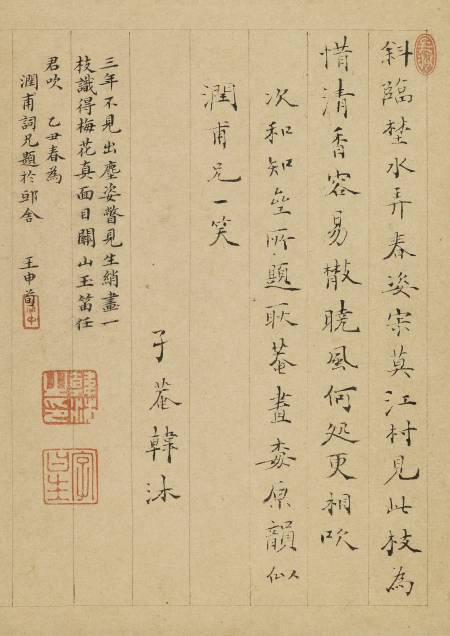 斜臨埜水弄春姿宗莫江村見此枝為
惜清香容易散曉風何処更相吹
次和知所題耿菴畫原韻似
潤甫兄一笑
子菴韓沐
三年不見出塵姿瞥見生綃畫一
枝識得梅花真面目關山玉笛任
君吹 乙丑春為
潤甫詞兄題於邸舍 王申荀